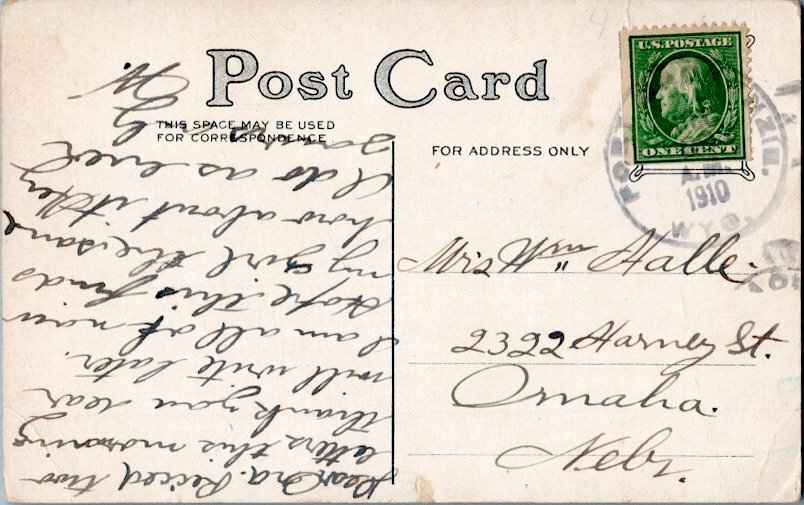 Post Card
THIS SPACE MAY BE USED
FOR CORRESPONDENCE
FOR ADDRESS ONLY
U.S. POSTAGE
ONE CENT
FORT
A.M.
1910
WYO.
Mrs Wm Halle
2322 Harney St.
Omaha.
Nebr.
Dear Ora. Recieved two
letters this morning
thank you dear
will write later.
I am all ok now
Hope this finds
my girl the same
how about it Hey
I do as ever
yours